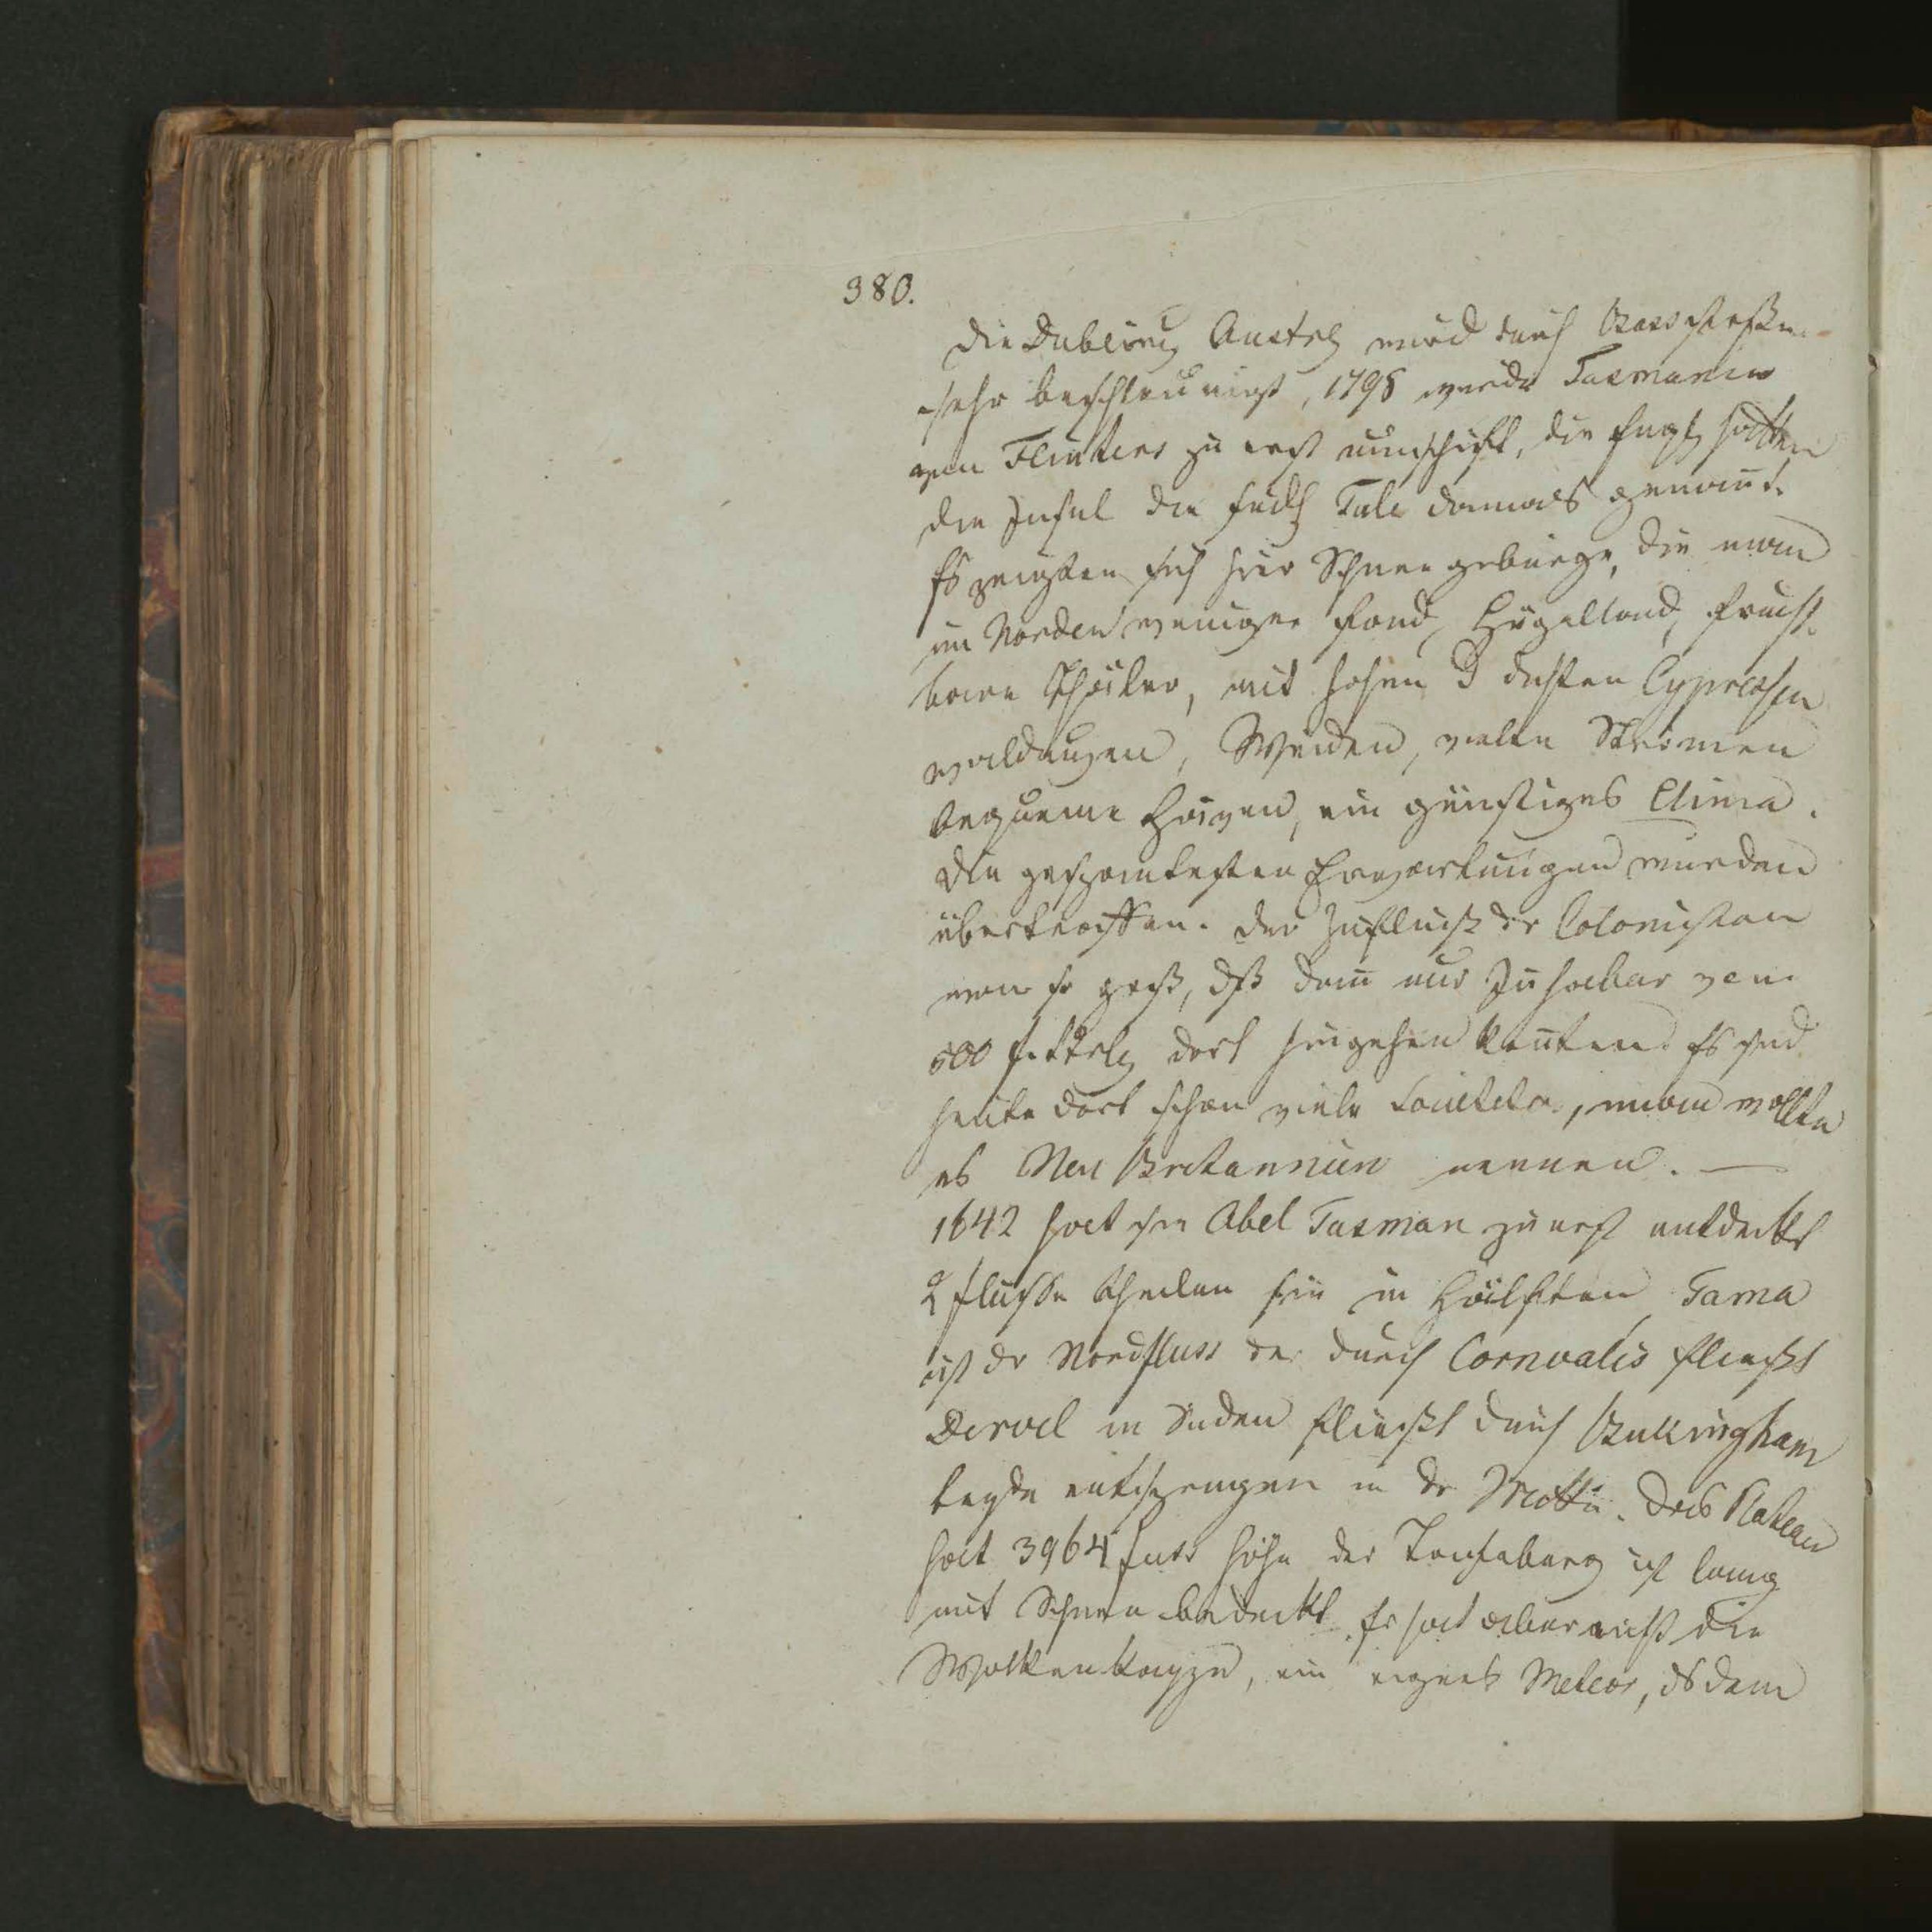 380.
die Austrlg wird durch Bassstrasse
sehr beschleunigt, 1798 wurde Tasmanien
von Flinters zu erst umschift, die Englh hatten
die Insel die südlh Tule damals genannt.
Es zeigten sich hier Schneegebürge, die man
im Norden weniger fand, Hügelland, frucht-
bare Thäler, mit hohen u dichten Cypressen
waldungen, Weiden, vielen Strömen
bequeme Häfen, ein günstiges Clima.
Die gespanntesten Erwartungen wurden
übertroffen. Der Zufluss der Colonisten
war so gross, dß dann nur Inhaber von
500 dort hingehen konnten. Es sind
heute dort schon viele man wollte
es Neu Britannien nennen. —
1642 hat sie Abel Tasman zu erst entdeckt
2 flüsse theilen sie in Hälften Tama
ist dr Nordfluss der durch Cornvalis fliesst
Dervel in Süden fliesst durch Bukingham
beyde entspringen in dr Mitte. Das Plateau
hat 3964 fuss höhe der Tafelberg ist lang
mit Schnee bedeckt. Er hat aber nicht die
Wolkenkappe, ein eignes Meteor, ds dem